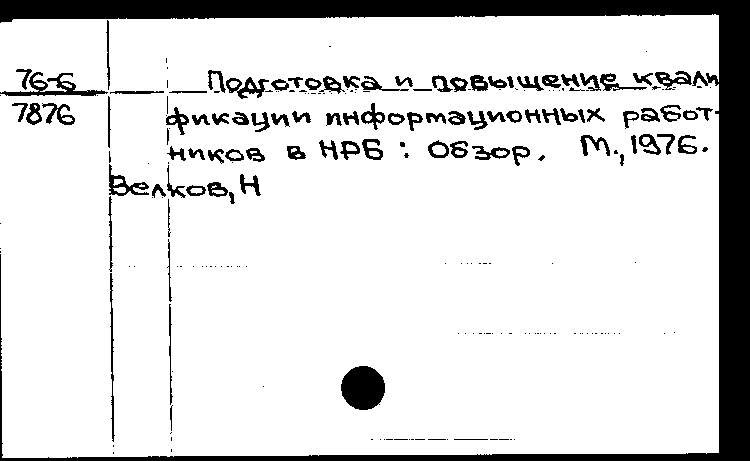 76-6
7876
Подготовка и повышение квали
фикации информационных работ-
ников в НРБ : Обзор. М., 1976.
Велков, Н